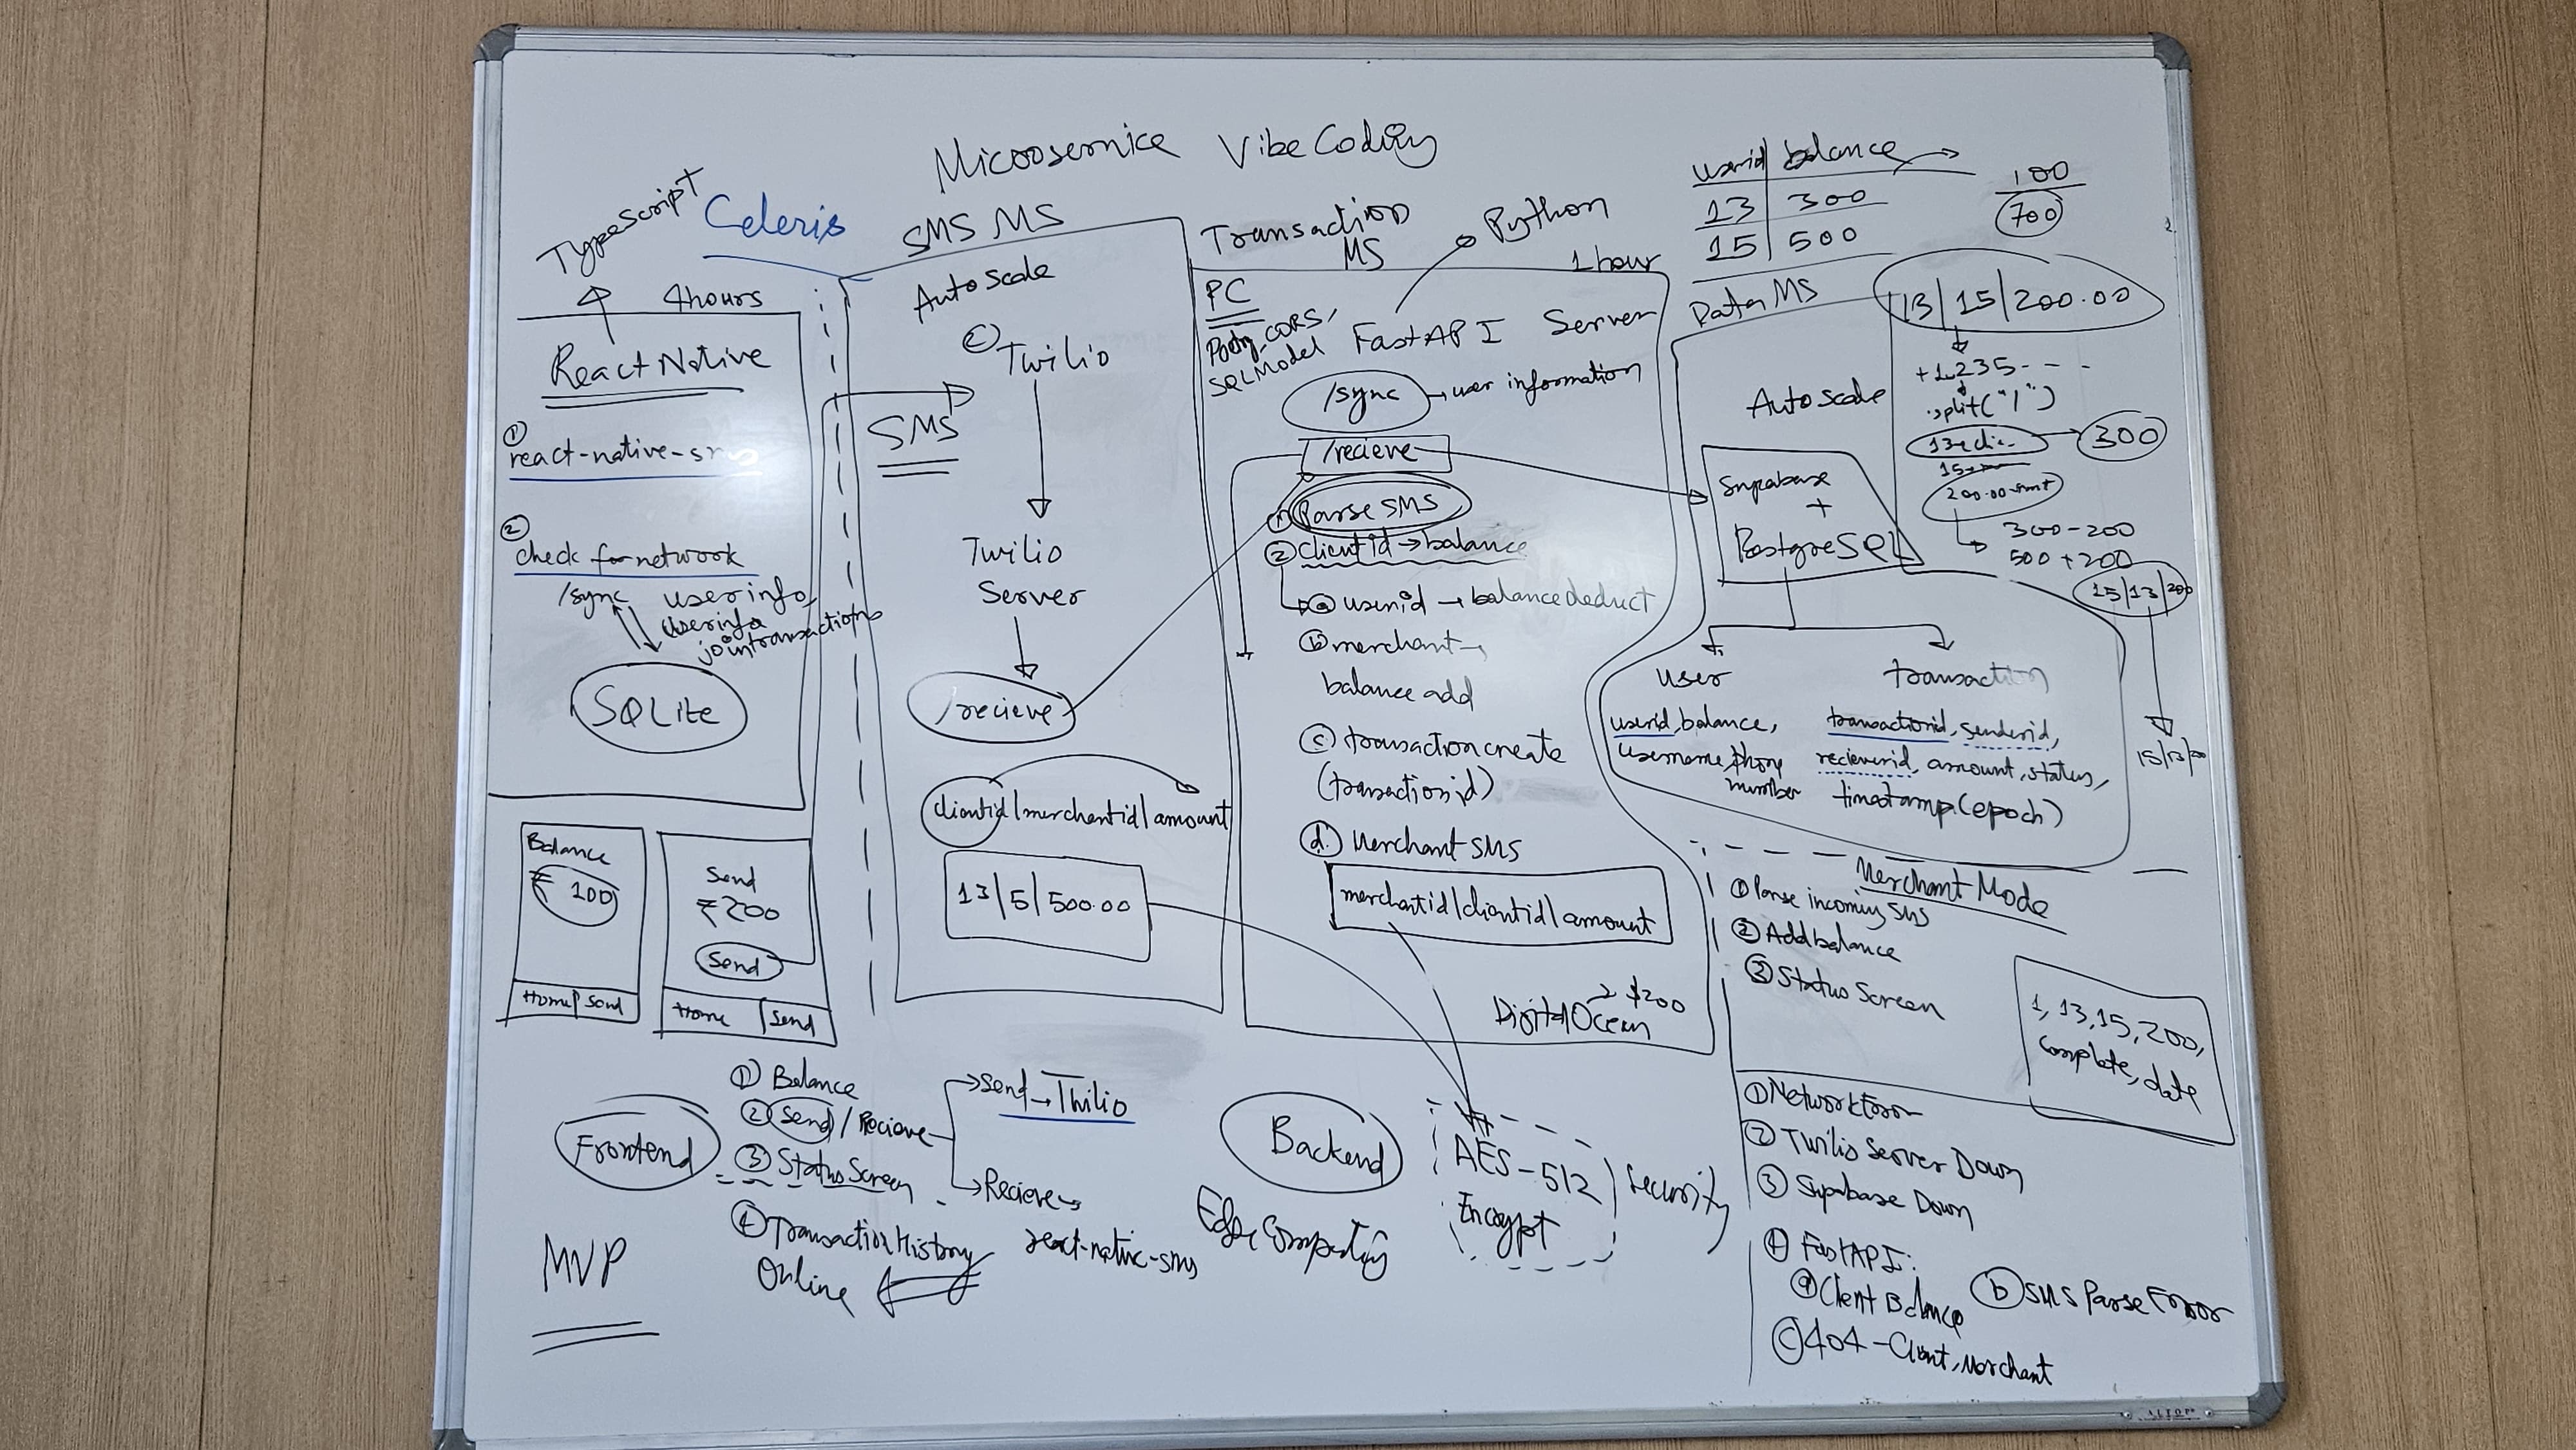 Microsernice VibeCoding
TypeScript
Celeris
4hours
React Native
①
react-native-sms
②
check for network
/sync userinfo,
userinfo
jointransactions
SQLite
Balance
₹ 100
Home | Send
Send
₹200
Send
Home | Send
SMS MS
Auto Scale
Twilio
SMS
Twilio
Server
/recieve
clientid/merchantid/amount
13/5/500.00
Transaction
MS
Python
1hour
PC
CORS,
SQLModel
FastAPI Server
/sync → user information
/recieve
① Parse SMS
② Clientid → balance
ⓐ userid → balance deduct
ⓑ merchant →
balance add
ⓒ transaction create
(transactionid)
ⓓ Merchant SMS
merchantid/clientid/amount
$200
Digital Ocean
userid | balance
13 | 300
15 | 500
100
700
Data MS
13/15/200.00
+1235- - -
.split("/")
300
300-200
500+200
15/13/200
15/13/200
Auto scale
Supabase
+
PostgreSQL
user
userid, balance,
username, phone
number
transaction
transactionid, senderid,
recieverid, amount, status,
timestamp(epoch)
Merchant Mode
① Parse incoming SMS
② Add balance
③ Status Screen
1, 13, 15, 200,
complete, date
Frontend
MVP
① Balance
② Send / Recieve
③ Status Screen
④ Transaction History
Online
Send → Twilio
Recieve →
react-native-sms
Backend
Edge Computing
AES-512
Encrypt
Security
① Network Error
② Twilio Server Down
③ Supabase Down
④ FastAPI:
ⓐ Client Balance
ⓑ SMS Parse Error
ⓒ 404 - Client, Merchant